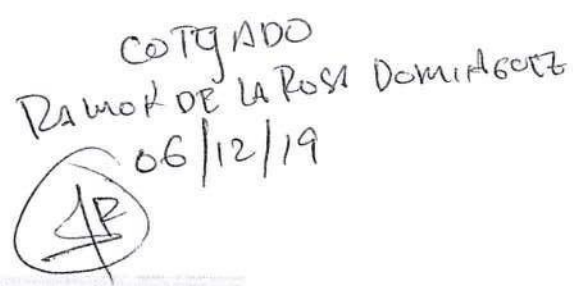 COTEJADO
RAMON DE LA ROSA DOMINGUEZ
06/12/19